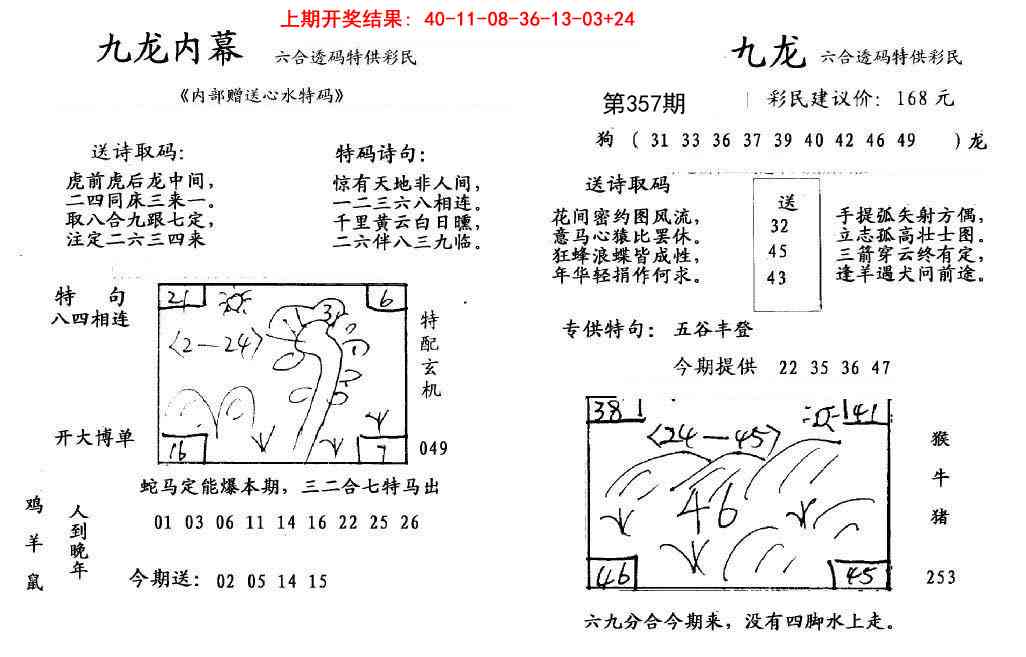 上期开奖结果: 40-11-08-36-13-03+24
九龙内幕
六合透码特供彩民
《内部赠送心水特码》
送诗取码:
虎前虎后龙中间,
二四同床三来一。
取八合九跟七定,
注定二六三四来
特码诗句:
惊有天地非人间,
一二三六八相连。
千里黄云白日曛,
二六伴八三九临。
特 句
八四相连
开大博单
21
6
〈2—24〉
3
16
7
特配玄机
049
蛇马定能爆本期, 三二合七特马出
鸡羊鼠
人到晚年
01 03 06 11 14 16 22 25 26
今期送: 02 05 14 15
九龙
六合透码特供彩民
第357期
彩民建议价: 168 元
狗 ( 31 33 36 37 39 40 42 46 49 ) 龙
送诗取码
花间密约图风流,
意马心猿比罢休。
狂蜂浪蝶皆成性,
年华轻捐作何求。
送
32
45
43
手提弧矢射方偶,
立志孤高壮士图。
三箭穿云终有定,
逢羊遇犬问前途。
专供特句: 五谷丰登
今期提供 22 35 36 47
38
41
〈24—45〉
46
46
45
猴
牛
猪
253
六九分合今期来, 没有四脚水上走。